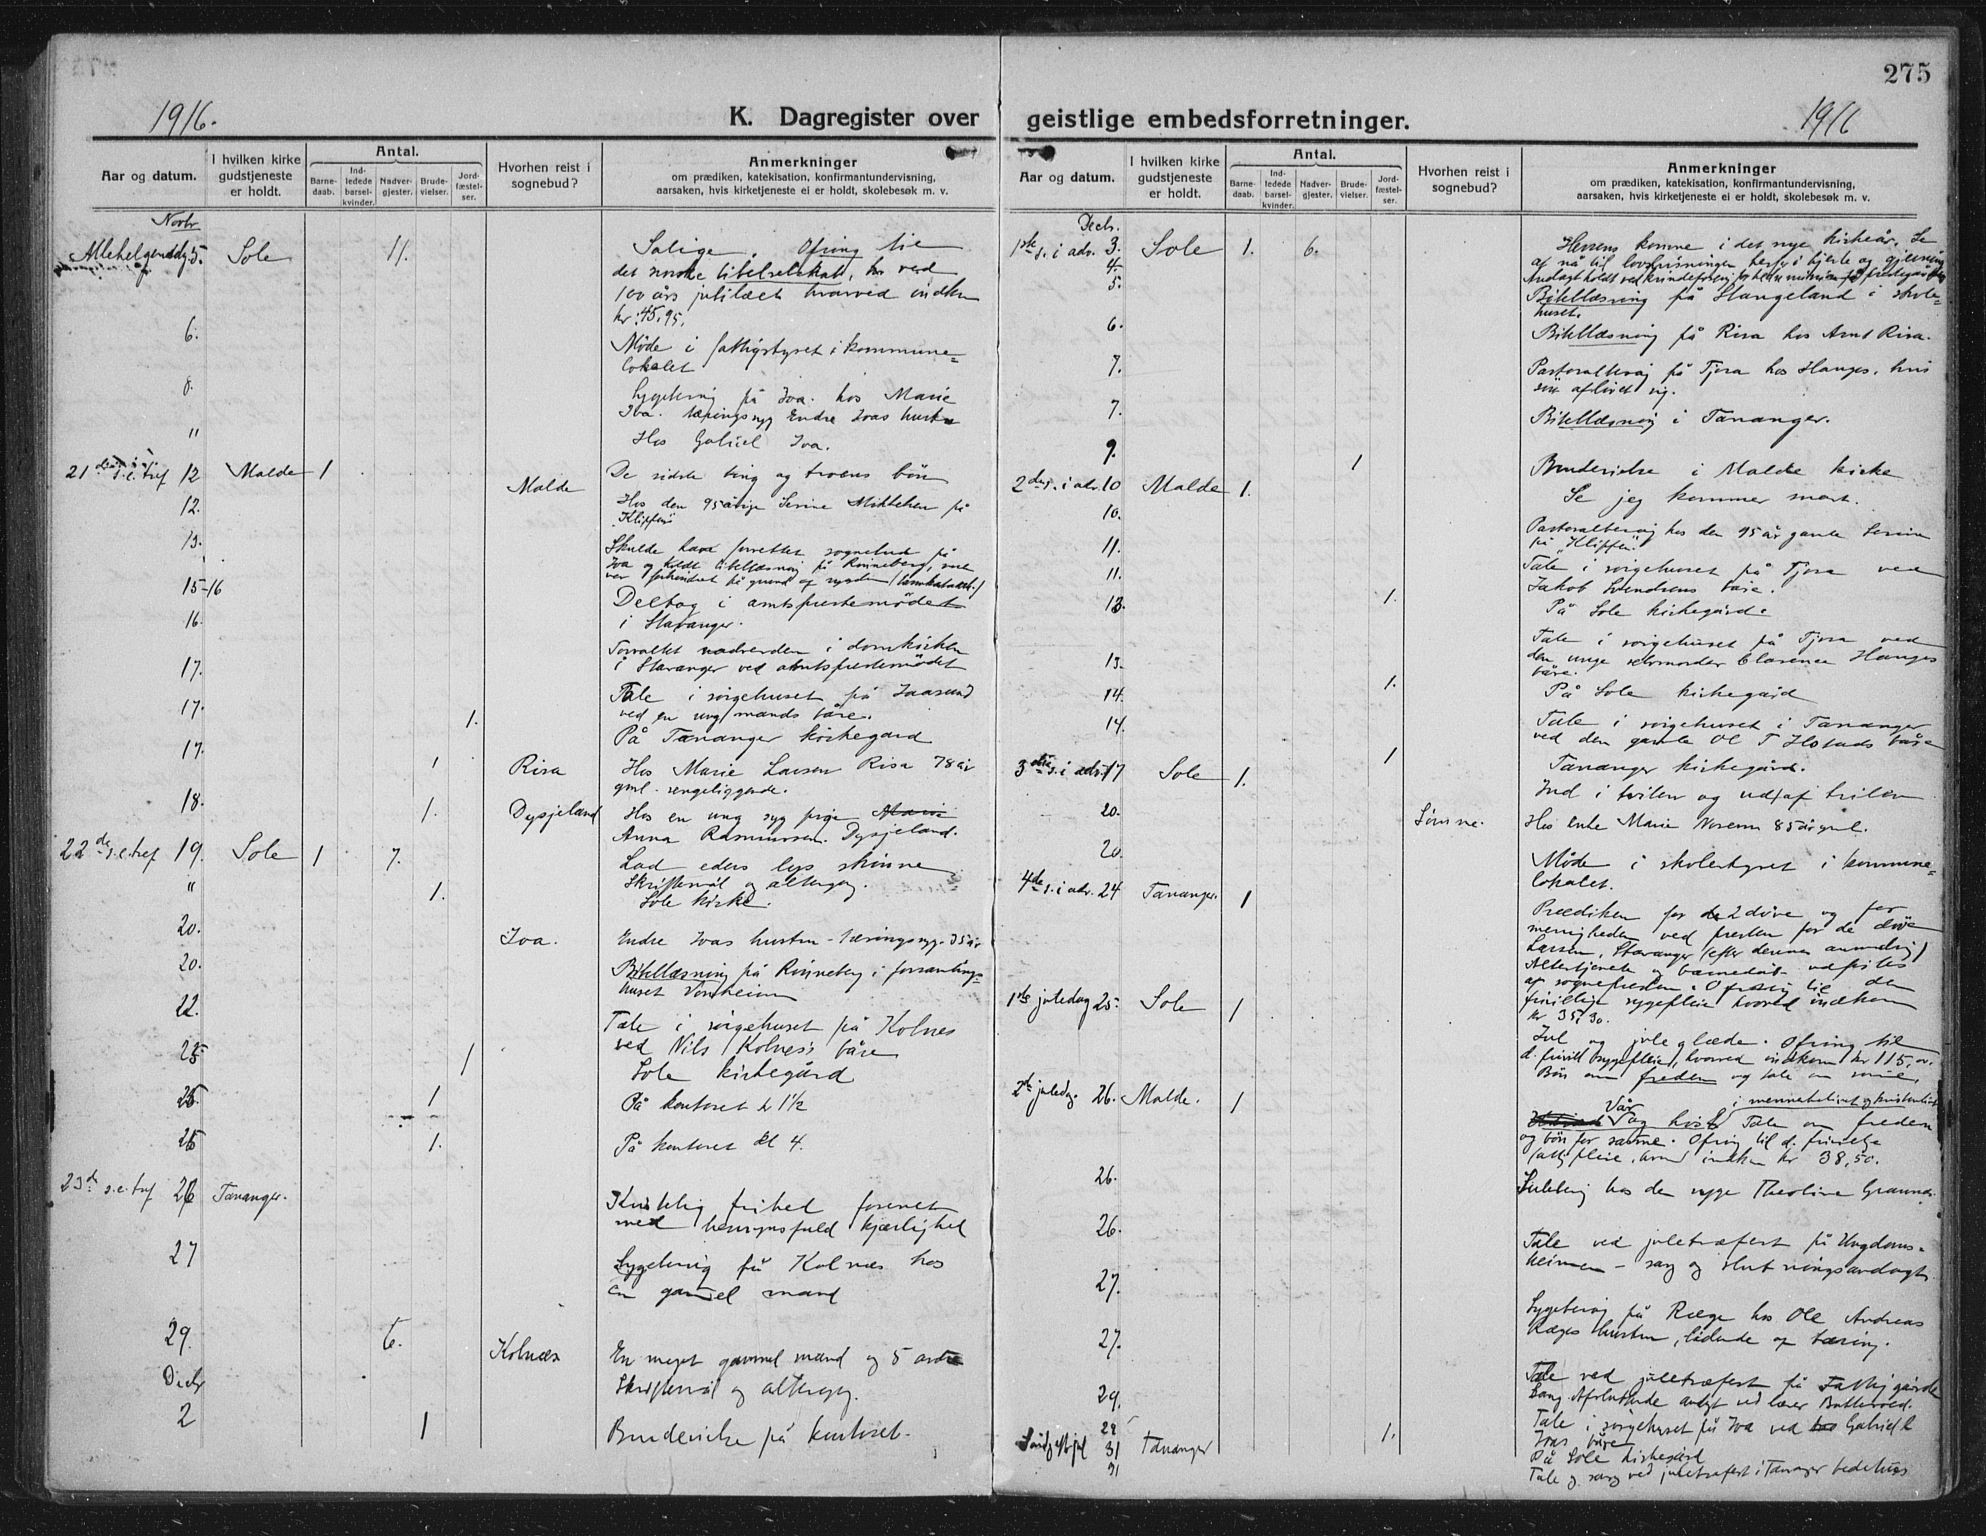 275
1916.
K. Dagregister over
Antal.
Aar og datum.
I hvilken kirke gudstjeneste er holdt.
Barne-daab.
Ind-ledede barsel-kvinder.
Nadver-gjester.
Brude-vielser.
Jord-fæstel-ser.
Hvorhen reist i sognebud?
Anmerkninger
om prædiken, katekisation, konfirmantundervisning,
aarsaken, hvis kirketjeneste ei er holdt, skolebesøk m. v.
Novbr
Allehelgensdg 5. Sole 11. Salige. Ofring til
det norske bibelselskab, ved
100 års jubilæet hvorved indkom
kr. 45,95.
6. Møde i fattigstyret i kommune-
lokalet
8. Sygebesøg på Joa hos Marie
Joa. tæringssyg Endre Joas hustru
" Hos Gabriel Joa.
21 s.e.tref 12 Malde 1 De sidste ting og troens bøn
12. Malde Hos den 95 årige Serine Mikkelsen på
"Klippen"
13. Skulde have forrettet sognebud på
Joa og holdt bibellæsning på Rønneberg, men
var forhindret på grund af sygdom
15-16 Deltog i amtsprestemødet
i Stavanger.
16. Forrettet nadverden i domkirken
i Stavanger ved amtsprestemødet
17. Tale i sørgehuset på Jaasund
ved en ung mands båre.
17. 1. På Tananger kirkegård
17. 1 Risa Hos Marie Larsen Risa 78 år
gml. sengeliggende.
18. 1. Dysjeland Hos en ung syg pige
Anna Rasmussen Dysjeland.
22de s.e.tref 19. Sole 1 7. Lad eders lys skinne
Skriftemål og altergang.
" 1. Sole kirke.
20. Joa. Endre Joas hustru - tæringssyg. 35 år
20. Bibellæsning på Rønneberg i forsamlings-
huset Vonheim
22. Tale i sørgehuset på Kolnes
ved Nils Kolnes's båre
25 1 Sole kirkegård
25. 1 På kontoret kl 1½
25 1. På kontoret kl 4.
23d s.e.tref 26 Tananger. Kristelig frihet forenet
med hensynsfuld kjærlighet
27 Sygebesøg på Kolnæs hos
en gammel mand
29. 6. Kolnæs En meget gammel mand og 5 andre
Skriftemål og altergang.
Decbr
2 1 Brudevielse på kontoret.
geistlige embedsforretninger.
1916
Antal.
Aar og datum.
I hvilken kirke gudstjeneste er holdt.
Barne-daab.
Ind-ledede barsel-kvinder.
Nadver-gjester.
Brude-vielser.
Jord-fæstel-ser.
Hvorhen reist i sognebud?
Anmerkninger
om prædiken, katekisation, konfirmantundervisning,
aarsaken, hvis kirketjeneste ei er holdt, skolebesøk m. v.
Decb.
1ste s. i adv. 3. Sole 1. 6. Herrens komme i det nye kirkeår. Se
4.
5. Bibellæsning på Stangeland i skole-
huset.
6. Bibellæsning på Risa hos Arnt Risa.
7. på Tjora hos Hanges, hvis
søn aflivet sig.
7. Bibellæsning i Tananger.
9. 1 Brudevielse i Malde kirke
2den s. i adv. 10 Malde 1. Se jeg kommer snart.
10. hos den 95 år gamle Serine
på "Klippen".
11. Tale i sørgehuset på Tjora ved
11. Jakob Svendsens båre.
13. 1. På Sole kirkegård.
13. Tale i sørgehuset på Tjora ved
den unge selvmorder Clarence Hanges
båre.
14. 1. På Sole kirkegård
14. Tale i sørgehuset i Tananger
ved den gamle Ol T båre
1 Tananger kirkegård.
3die s. i adv. 17 Sole 1. Ind i tvilen og ud af tvilen
20. Sømme. Hos enke Marie 85 år gml.
20. Møde i skolestyret i kommune-
lokalet.
4de s. i adv. 24 Tananger. 1 Prædiken for de 2 døve og for
menigheden ved presten for de døve
Larsen, Stavanger (efter dennes anmodnig)
Altertjeneste og barnedåb udførtes
af sognepresten. Ofring til den
frivillige sygepleie hvorved indkom
kr 35,30.
1ste juledag 25 Sole 1 Jul og jule glæde. Ofring til
d. frivill sygepleie, hvorved indkom kr 115, ..
Bøn om freden og tale om
2d juledag. 26. Malde. 1 Vår i menneskelivet og kristenlivet
og høst Tale om freden
og bøn for samme. Ofring til d. frivillige
sygepleie. indkom kr 38,50.
26. hos den syge Theoline
26. Tale ved juletræfest på Ungdoms-
heimen - sang og slutningsandagt
27. Sygebesøg på Ræge hos Ole Andreas
Ræges hustru, lidende af tæring.
27. Tale ved juletræfest på Fattiggården
29. Sang. Afsluttende ved lærer
29 Tale i sørgehuset på Joa ved Gabriel
Joas båre
Sønd e jul 31 Tananger 1. På Sole kirkegård
31 Tale og sang ved juletræfest i Tananger bedehus